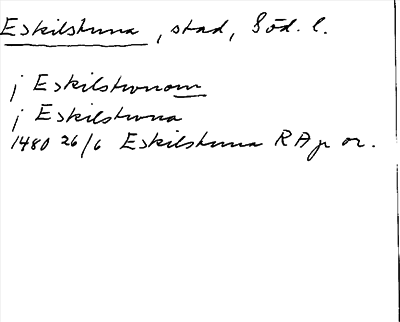 Eskilstuna, stad, Söd. l.
j Eskilstwnom
j Eskilstwna
1480 26/6 Eskilstuna RAp or.